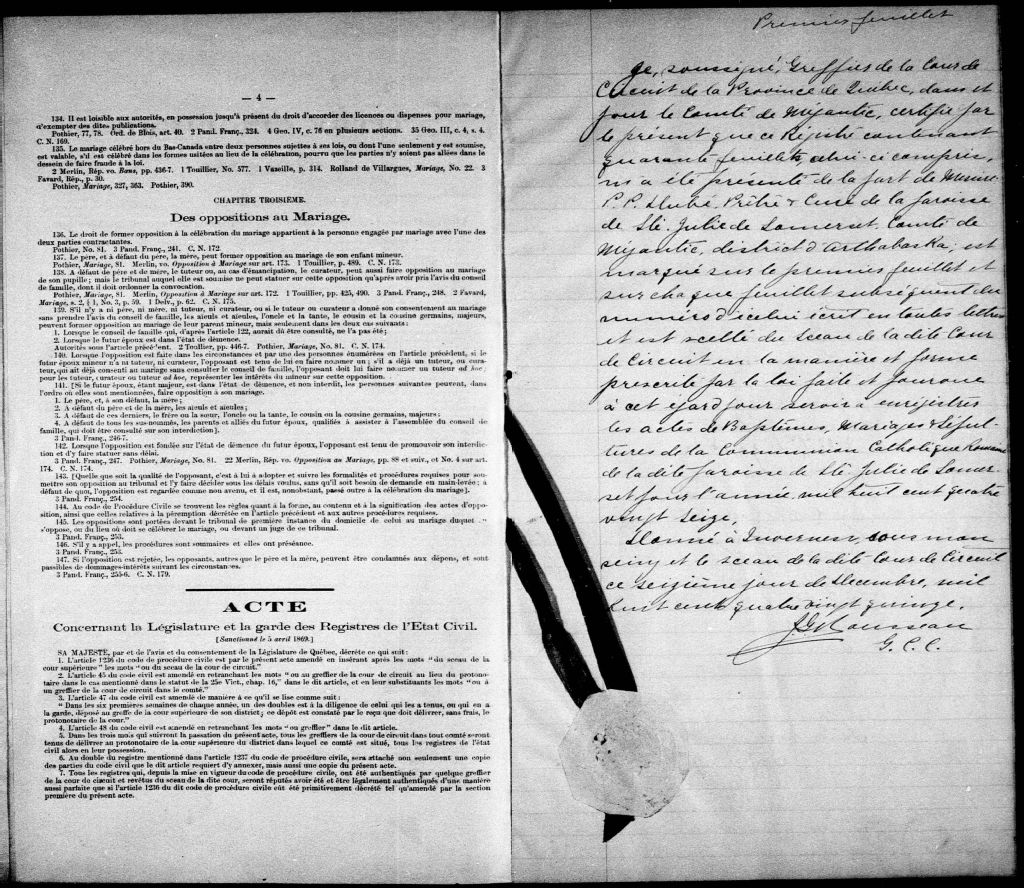 — 4 —
134. Il est loisible aux autorités, en possession jusqu'à présent du droit d'accorder des licences ou dispenses pour mariage,
d'exempter des dites publications.
Pothier, 77, 78. Ord. de Blois, art. 40. 2 Pand. Franç., 324. 4 Geo. IV, c. 76 en plusieurs sections. 35 Geo. III, c. 4, s. 4.
C. N. 169.
135. Le mariage célébré hors du Bas-Canada entre deux personnes sujettes à ses lois, ou dont l'une seulement y est soumise,
est valable, s'il est célébré dans les formes usitées au lieu de la célébration, pourvu que les parties n'y soient pas allées dans le
dessein de faire fraude à la loi.
2 Merlin, Rép. vo. Bans, pp. 436-7. 1 Touillier, No. 577. 1 Vazeille, p. 314. Rolland de Villargues, Mariage, No. 22. 3
Favard, Rép., p. 30.
Pothier, Mariage, 327, 363. Pothier, 390.
CHAPITRE TROISIÈME.
Des oppositions au Mariage.
136. Le droit de former opposition à la célébration du mariage appartient à la personne engagée par mariage avec l'une des
deux parties contractantes.
Pothier, No. 81. 3 Pand. Franç., 241. C. N. 172.
137. Le père, et à défaut du père, la mère, peut former opposition au mariage de son enfant mineur.
Pothier, Mariage, 81. Merlin, vo. Opposition à Mariage sur art. 173. 1 Touillier, p. 489. C. N. 173.
138. A défaut de père et de mère, le tuteur ou, au cas d'émancipation, le curateur, peut aussi faire opposition au mariage
de son pupille; mais le tribunal auquel elle est soumise ne peut statuer sur cette opposition qu'après avoir pris l'avis du conseil
de famille, dont il doit ordonner la convocation.
Pothier, Mariage, 81. Merlin, Opposition à Mariage sur art. 172. 1 Touillier, pp. 425, 490. 3 Pand. Franç., 248. 2 Favard,
Mariage, s. 2, § 1, No. 3, p. 59. 1 Delv., p. 62. C. N. 175.
139. S'il n'y a ni père, ni mère, ni tuteur, ni curateur, ou si le tuteur ou curateur a donné son consentement au mariage
sans prendre l'avis du conseil de famille, les aïeuls et aïeules, l'oncle et la tante, le cousin et la cousine germains, majeurs,
peuvent former opposition au mariage de leur parent mineur, mais seulement dans les deux cas suivants:
1. Lorsque le conseil de famille qui, d'après l'article 122, aurait dû être consulté, ne l'a pas été;
2. Lorsque le futur époux est dans l'état de démence.
Autorités sous l'article précédent. 2 Touillier, pp. 446-7. Pothier, Mariage, No. 81. C. N. 174.
140. Lorsque l'opposition est faite dans les circonstances et par une des personnes énumérées en l'article précédent, si le
futur époux mineur n'a ni tuteur, ni curateur, l'opposant est tenu de lui en faire nommer un; s'il a déjà un tuteur, ou cura-
teur, qui ait déjà consenti au mariage sans consulter le conseil de famille, l'opposant doit lui faire nommer un tuteur ad hoc;
pour les tuteur, curateur ou tuteur ad hoc, représenter les intérêts du mineur sur cette opposition.
141. [Si le futur époux, étant majeur, est dans l'état de démence, et non interdit, les personnes suivantes peuvent, dans
l'ordre où elles sont mentionnées, faire opposition à son mariage.
1. Le père, et, à son défaut, la mère;
2. A défaut du père et de la mère, les aïeuls et aïeules;
3. A défaut de ces derniers, le frère ou la sœur, l'oncle ou la tante, le cousin ou la cousine germains, majeurs;
4. A défaut de tous les sus-nommés, les parents et alliés du futur époux, qualifiés à assister à l'assemblée du conseil de
famille, qui doit être consulté sur son interdiction].
3 Pand. Franç., 246-7.
142. Lorsque l'opposition est fondée sur l'état de démence du futur époux, l'opposant est tenu de promouvoir son interdic-
tion et d'y faire statuer sans délai.
3 Pand. Franç., 247. Pothier, Mariage, No. 81. 22 Merlin, Rép. vo. Opposition au Mariage, pp. 88 et suiv., et No. 4 sur art.
174. C. N. 174.
143. [Quelque que soit la qualité de l'opposant, c'est à lui à adopter et suivre les formalités et procédures requises pour sou-
mettre son opposition au tribunal et l'y faire décider sous les délais voulus, sans qu'il soit besoin de demande en main-levée; à
défaut de quoi, l'opposition est regardée comme non avenu, et il est, nonobstant, passé outre à la célébration du mariage].
3 Pand. Franç., 254.
144. Au code de Procédure Civile se trouvent les règles quant à la forme, au contenu et à la signification des actes d'oppo-
sition, ainsi que celles relatives à la péremption décrétée en l'article précédent et aux autres procédures requises.
145. Les oppositions sont portées devant le tribunal de première instance du domicile de celui au mariage duquel on
s'oppose, ou du lieu où doit se célébrer le mariage, ou devant un juge de ce tribunal.
3 Pand. Franç., 253.
146. S'il y a appel, les procédures sont sommaires et elles ont préséance.
3 Pand. Franç., 253.
147. Si l'opposition est rejetée, les opposants, autres que le père et la mère, peuvent être condamnés aux dépens, et sont
passibles de dommages-intérêts suivant les circonstances.
3 Pand. Franç., 255-6. C. N. 179.
ACTE
Concernant la Législature et la garde des Registres de l'Etat Civil.
[Sanctionné le 5 avril 1869.]
SA MAJESTE, par et de l'avis et du consentement de la Législature de Québec, décrète ce qui suit:
1. L'article 1236 du code de procédure civile est par le présent acte amendé en insérant après les mots "du sceau de la
cour supérieure" les mots "ou du sceau de la cour de circuit."
2. L'article 45 du code civil est amendé en retranchant les mots "ou au greffier de la cour de circuit au lieu du protono-
taire dans le cas mentionné dans le statut de la 25e Vict., chap. 16," dans le dit article, et en leur substituants les mots "ou à
un greffier de la cour de circuit dans le comté."
3. L'article 47 du code civil est amendé de manière à ce qu'il se lise comme suit:
"Dans les six premières semaines de chaque année, un des doubles est à la diligence de celui qui les a tenus, ou qui en a
la garde, déposé au greffe de la cour supérieure de son district; ce dépôt est constaté par le reçu que doit délivrer, sans frais, le
protonotaire de la cour."
4. L'article 48 du code civil est amendé en retranchant les mots "ou greffier" dans le dit article.
5. Dans les trois mois qui suivront la passation du présent acte, tous les greffiers de la cour de circuit dans tout comté seront
tenus de délivrer au protonotaire de la cour supérieure du district dans lequel ce comté est situé, tous les registres de l'état
civil alors en leur possession.
6. Au double du registre mentionné dans l'article 1237 du code de procédure civile, sera attaché non seulement une copie
des parties du code civil que le dit article requiert d'y annexer, mais aussi une copie du présent acte.
7. Tous les registres qui, depuis la mise en vigueur du code de procédure civile, ont été authentiqués par quelque greffier
de la cour de circuit et revêtus du sceau de la dite cour, seront réputés avoir été et être légalement authentiqués d'une manière
aussi parfaite que si l'article 1236 du dit code de procédure civile eût été primitivement décrété tel qu'amendé par la section
première du présent acte.
Premier feuillet
Je, soussigné, Greffier de la Cour de
Circuit de la Province de Québec, dans et
pour le Comté de Mégantic, certifie par
le présent que ce Régitre contenant
quarante feuillets, celui-ci compris,
m'a été présenté de la part de Messire
P. P. Dubé, Prêtre & Curé de la paroisse
de Ste. Julie de Somerset, Comté de
Mégantic, district d'Arthabaska, est
marqué sur le premier feuillet et
sur chaque feuillet subséquent du
numéro d'icelui écrit en toutes lettres
et est scellé du sceau de la dite Cour
de Circuit en la manière et forme
prescrite par la loi faite et pourvue
à cet égard pour servir à enregistrer
les actes de Baptêmes, Mariages & Sépul-
tures de la Communion Catholique Romaine
de la dite paroisse de Ste Julie de Somer-
set pour l'année mil huit cent quatre
vingt seize.
Donné à Inverness, sous mon
seing et le sceau de la dite Cour de Circuit
ce seizième jour de Décembre, mil
huit cent quatre vingt quinze.
J. G. Rousseau
G. C. C.